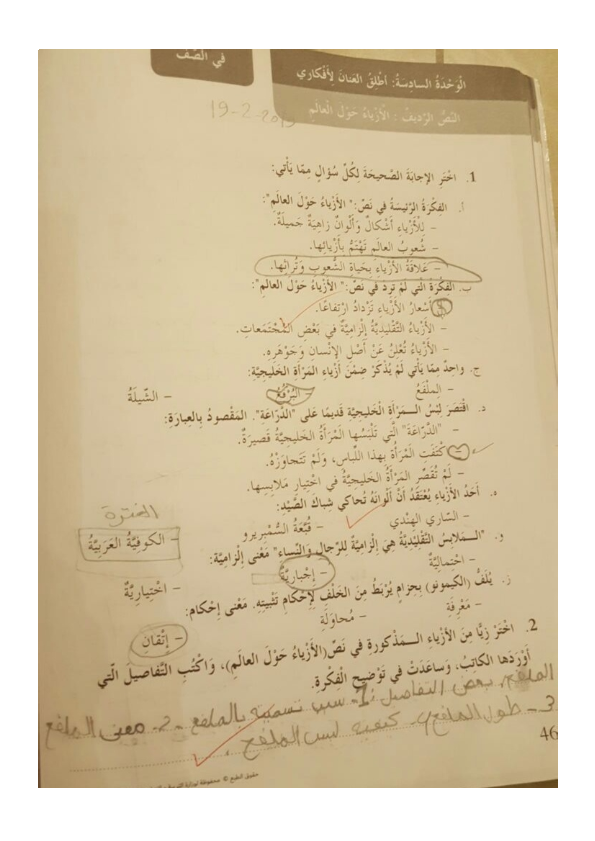 في الصف
الْوَحْدَةُ السادِسَةُ: أُطْلِقُ العَنانَ لِأَفْكاري
النَّصُّ الرَّديفُ : الْأَزْياءُ حَوْلَ الْعالَمِ
19-2-2019
1. اخْتَرِ الإجابَةَ الصَّحيحَةَ لِكُلِّ سُؤالٍ مِمّا يَأْتي:
أ. الفِكْرَةُ الرَّئيسَةُ في نَصِّ:" الْأَزْياءُ حَوْلَ العالَمِ":
- لِلْأَزْياءِ أَشْكالٌ وَأَلْوانٌ زاهِيَةٌ جَميلَةٌ.
- شُعوبُ العالَمِ تَهْتَمُّ بِأَزْيائِها.
- عَلاقَةُ الأَزْياءِ بِحَياةِ الشُّعوبِ وَتُراثِها.
ب. الفِكْرَةُ الَّتي لَمْ تَرِدْ في نَصِّ: " الْأَزْياءُ حَوْلَ العالَمِ":
- أَسْعارُ الْأَزْياءِ تَزْدادُ ارْتِفاعًا.
- الْأَزْياءُ التَّقْليدِيَّةُ إِلْزامِيَّةٌ في بَعْضِ الْمُجْتَمَعاتِ.
- الْأَزْياءُ تُعْلِنُ عَنْ أَصْلِ الإِنْسانِ وَجَوْهَرِهِ.
ج. واحِدٌ مِمّا يَأْتي لَمْ يُذْكَرْ ضِمْنَ أَزْياءِ المَرْأَةِ الخَليجِيَّةِ:
- المِلْفَعُ - البُرْقُعُ - الشّيلَةُ
د. اقْتَصَرَ لِبْسُ الْـمَرْأَةِ الْخَليجِيَّةِ قَديمًا عَلى "الدَّرّاعَةِ". المَقْصودُ بِالعِبارَةِ:
- "الدَّرّاعَةُ" الَّتي تَلْبَسُها الْمَرْأَةُ الخَليجِيَّةُ قَصيرَةٌ.
- اكْتَفَتِ الْمَرْأَةُ بِهذا اللِّباسِ، وَلَمْ تَتَجاوَزْهُ.
- لَمْ تُقَصِّرِ المَرْأَةُ الخَليجِيَّةُ في اخْتِيارِ مَلابِسِها.
ه. أَحَدُ الْأَزْياءِ يُعْتَقَدُ أَنَّ أَلْوانَهُ تُحاكي شِباكَ الصَّيْدِ:
- السّاري الهِنْدي - قُبَّعَةُ السُّمْبريرو - الكوفِيَّةُ العَرَبِيَّةُ
و. "الْـمَلابِسُ التَّقْليدِيَّةُ هِيَ إِلْزامِيَّةٌ لِلرِّجالِ وَالنِّساءِ" مَعْنى إِلْزامِيَّةٌ:
- احْتِمالِيَّةٌ - إِجْبارِيَّةٌ - اخْتِيارِيَّةٌ
ز. يُلَفُّ (الكيمونو) بِحِزامٍ يُرْبَطُ مِنَ الخَلْفِ لِإِحْكامِ تَثْبيتِهِ. مَعْنى إِحْكام:
- مَعْرِفَة - مُحاوَلَة - إِتْقان
2. اخْتَرْ زِيًّا مِنَ الأَزْياءِ الْـمَذْكورةِ في نَصِّ(الأَزْياءُ حَوْلَ العالَمِ)، وَاكْتُبِ التَّفاصيلَ الَّتي
أَوْرَدَها الكاتِبُ، وَساعَدَتْ في تَوْضيحِ الْفِكْرَةِ.
الملفع، بعض التفاصيل: 1- سبب تسميته بالملفع - 2- معنى الملفع
3- طول الملفع 4- كيفية لبس الملفع.
46